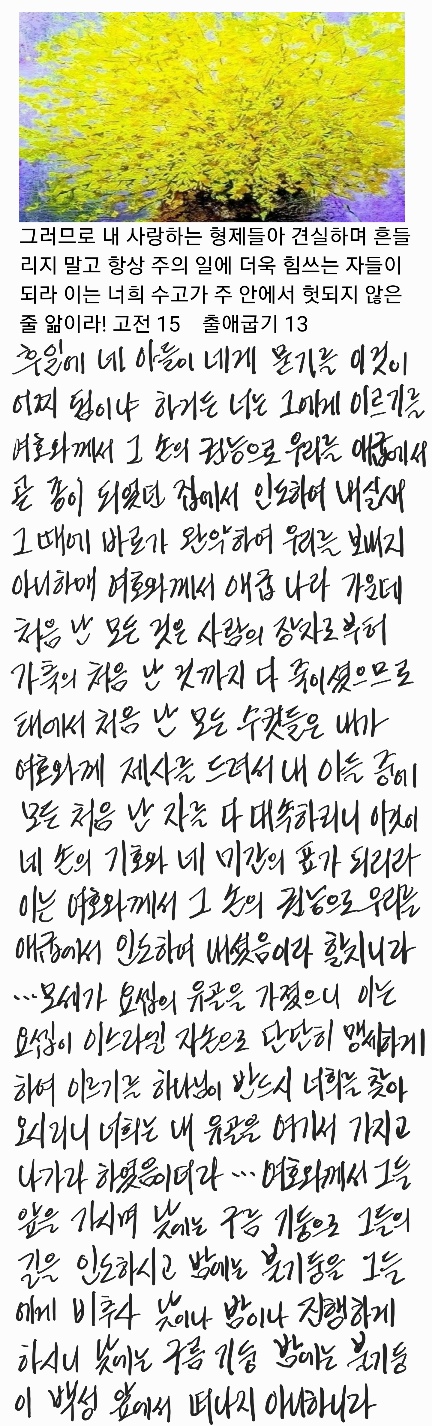 그러므로 내 사랑하는 형제들아 견실하며 흔들
리지 말고 항상 주의 일에 더욱 힘쓰는 자들이
되라 이는 너희 수고가 주 안에서 헛되지 않은
줄 앎이라! 고전 15 출애굽기 13
후일에 네 아들이 네게 묻기를 이것이
어찌 됨이냐 하거든 너는 그에게 이르기를
여호와께서 그 손의 권능으로 우리를 애굽에서
곧 종이 되었던 집에서 인도하여 내실새
그 때에 바로가 완악하여 우리를 보내지
아니하매 여호와께서 애굽 나라 가운데
처음 난 모든 것은 사람의 장자로부터
가축의 처음 난 것까지 다 죽이셨으므로
태에서 처음 난 모든 수컷들은 내가
여호와께 제사를 드려서 내 아들 중에
모든 처음 난 자를 다 대속하리니 이것이
네 손의 기호와 네 미간의 표가 되리라
이는 여호와께서 그 손의 권능으로 우리를
애굽에서 인도하여 내셨음이라 할지니라
...모세가 요셉의 유골을 가졌으니 이는
요셉이 이스라엘 자손으로 단단히 맹세하게
하여 이르기를 하나님이 반드시 너희를 찾아
오시리니 너희는 내 유골을 여기서 가지고
나가라 하였음이더라 ... 여호와께서 그들
앞을 가시며 낮에는 구름 기둥으로 그들의
길을 인도하시고 밤에는 불기둥을 그들
에게 비추사 낮이나 밤이나 진행하게
하시니 낮에는 구름 기둥 밤에는 불기둥
이 백성 앞에서 떠나지 아니하니라